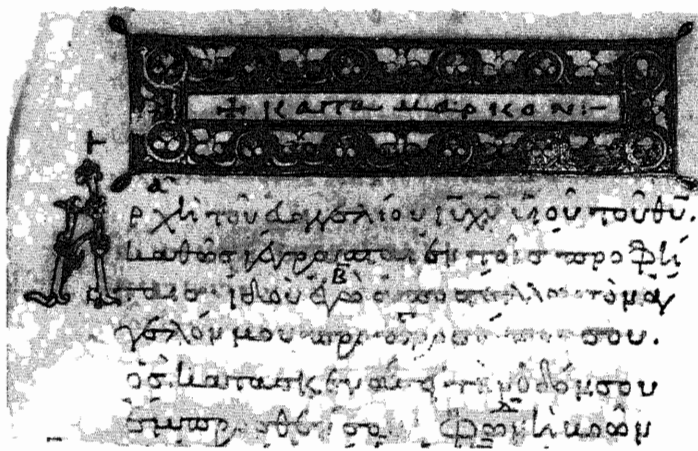 + κατα μαρκον:-
Ἀρχὴ τοῦ εὐαγγελίου ιῦ χῦ υἱοῦ τοῦ θῦ.
καθὼς γέγραπται ἐν τοῖς προφή
ταις ἰδοὺ ἐγὼ ἀποστέλλω τὸν ἄγ
γελόν μου πρὸ προσώπου σου.
ὃς κατασκευάσει τὴν ὁδόν σου
ἔμπροσθέν σου Φωνὴ βοῶν